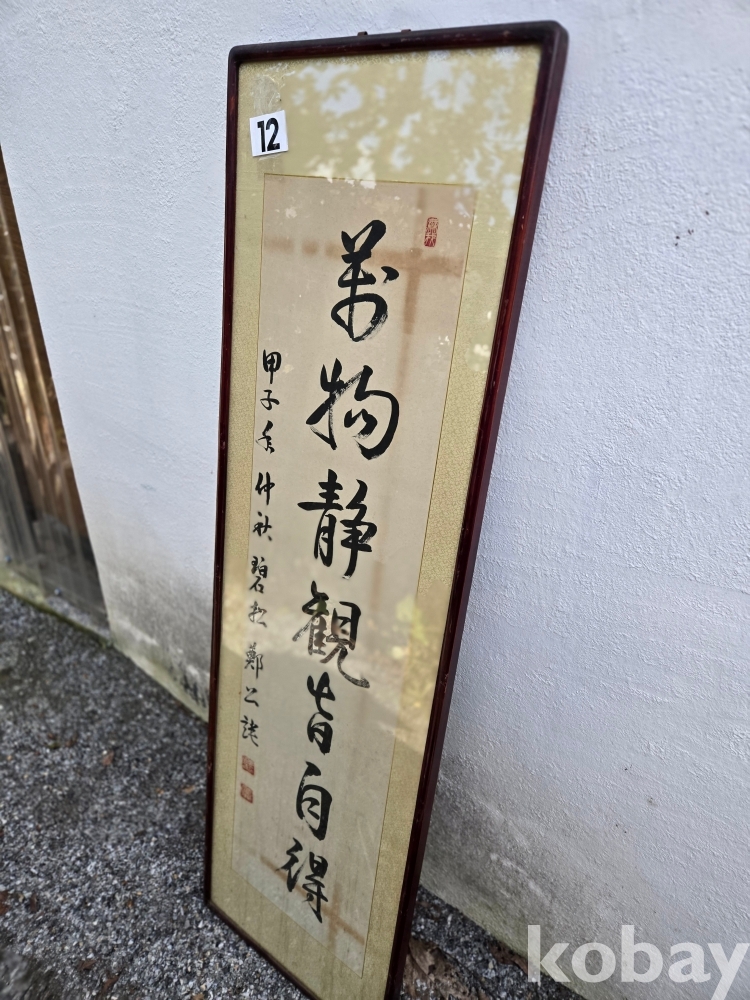 12
萬物静観皆自得
甲子年仲秋 碧松 鄭公
kobay